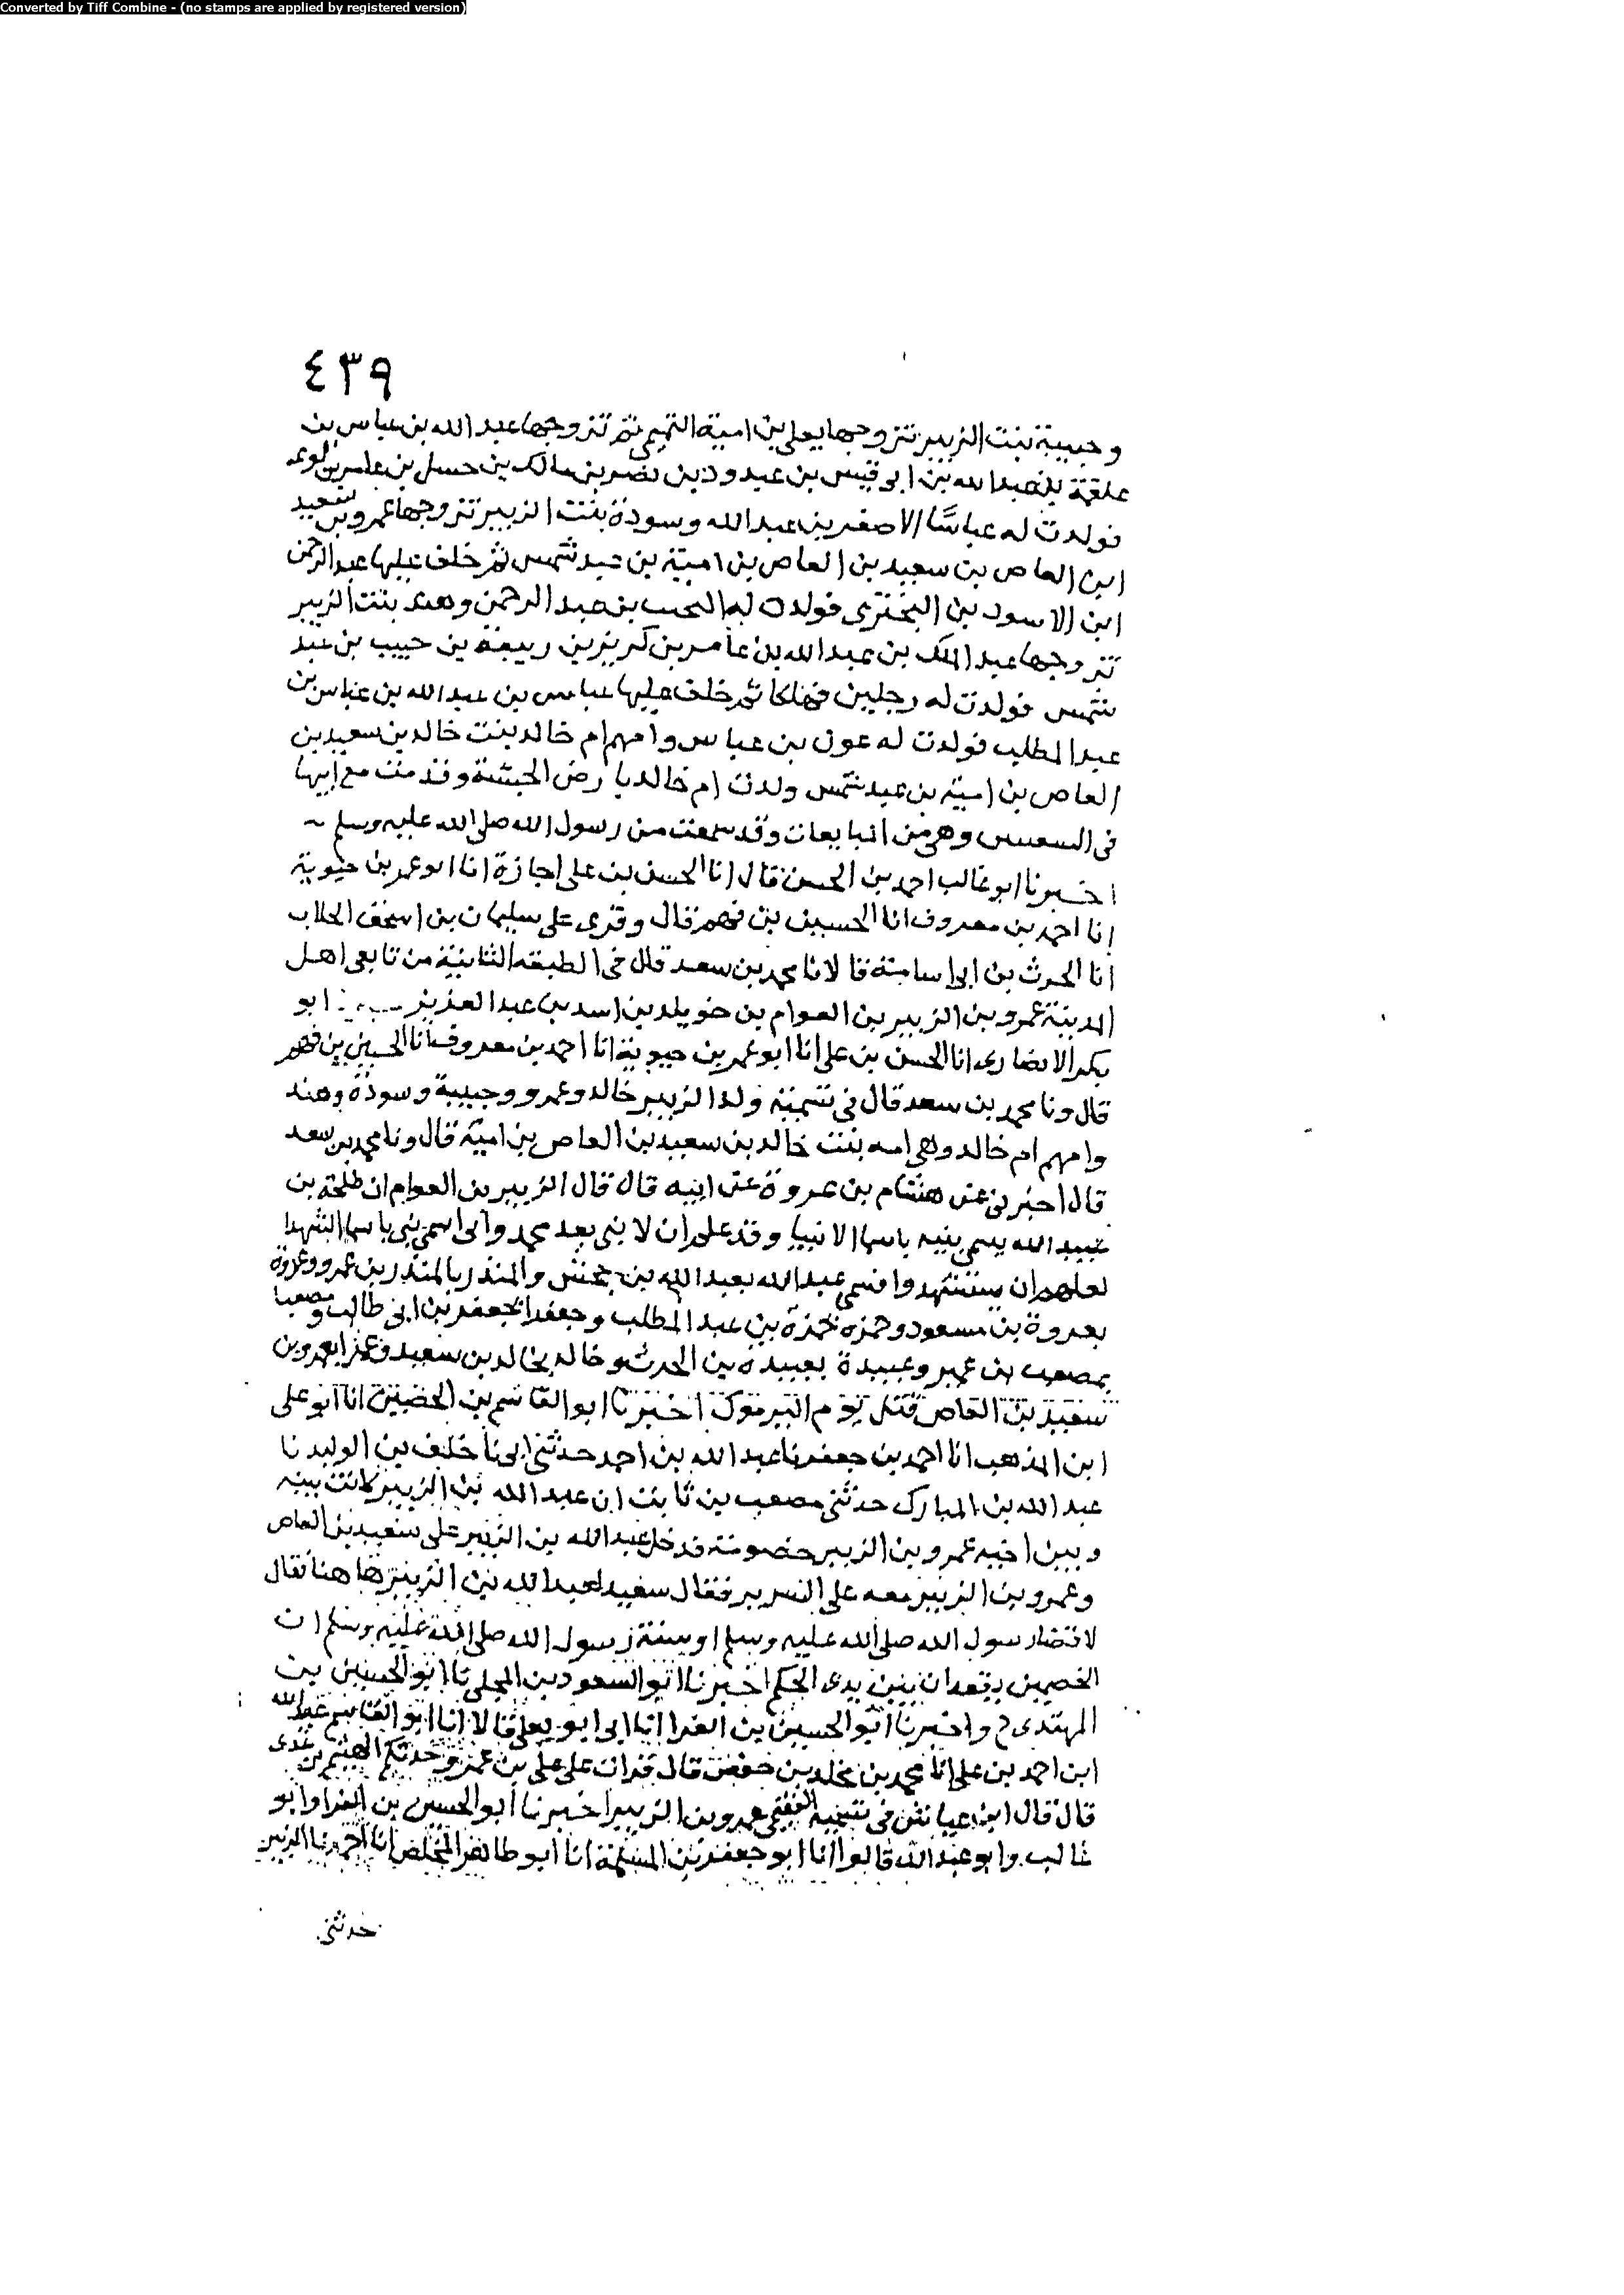 Converted by Tiff Combine - (no stamps are applied by registered version)
٤٣٩
وحبيبة بنت الزبير تزوجها يعلى بن امية التميمى ثم تزوجها عبد الله بن عباس بن
علقمة بن عبد الله بن ابى قيس بن عبد ود بن نصر بن مالك بن حسل بن عامر بن لوى
فولدت له عباسًا الاصغر بن عبد الله وسودة بنت الزبير تزوجها عمرو بن سعيد
ابن العاص بن سعيد بن العاص بن امية بن عبد شمس ثم خلف عليها عبد الرحمن
ابن الاسود بن البخترى فولدت له بن عبد الرحمن وهند بنت الزبير
تزوجها عبد الملك بن عبد الله بن عامر بن كريز بن ربيعة بن حبيب بن عبد
شمس فولدت له رجلين فهلكا ثم خلف عليها عباس بن عبد الله بن عباس بن
عبد المطلب فولدت له عون بن عباس وامهم ام خالد بنت خالد بن سعيد بن
العاص بن امية بن عبد شمس ولدت ام خالد بارض الحبشة وقدمت مع ابيها
فى وهى من وقد سمعت من رسول الله صلى الله عليه وسلم
اخبرنا ابو غالب احمد بن الحسن قال انا الحسن بن على اجازة انا ابو عمر بن حيوية
انا احمد بن معروف انا الحسين بن فهم قال وقرى على سليمان بن اسحق الجلاب
انا الحرث بن ابى اسامة قالا نا محمد بن سعد قال فى الطبقة الثانية من تابعى اهل
المدينة عمرو بن الزبير بن العوام بن خويلد بن اسد بن عبد العزيز ابو
بكر الانصارى انا الحسن بن على انا ابو عمر بن حيوية انا احمد بن معروف انا الحسين بن فهم
قال ونا محمد بن سعد قال فى تسمية ولد الزبير خالد وعمرو وحبيبة وسودة وهند
وامهم ام خالد وهى امه بنت خالد بن سعيد بن العاص بن امية قال ونا محمد بن سعد
قال اخبرنى عن هشام بن عروة عن ابيه قال قال الزبير بن العوام ان طلحة بن
عبيد الله يسمى بنيه باسما الانبيا وقد علم ان لا نبى بعد محمد وانى اسمى بنى باسما الشهدا
لعلهم ان يستشهدوا فسمى عبد الله بعبد الله بن جحش والمنذر بالمنذر بن عمرو وعروة
بعروة بن مسعود وحمزه بحمزة بن عبد المطلب وجعفرا بجعفر بن ابى طالب ومصعبا
بمصعب بن عمير وعبيدة بعبيدة بن الحرث وخالد بخالد بن سعيد وعمرا بعمرو بن
سعيد بن العاص قتل يوم اليرموك اخبرنا ابو القاسم بن الحصين انا ابو على
ابن المذهب انا احمد بن جعفر نا عبد الله بن احمد حدثنى ابى نا خلف بن الوليد نا
عبد الله بن المبارك حدثنى مصعب بن ثابت ان عبد الله بن الزبير كانت بينه
وبين اخيه عمرو بن الزبير خصومة فدخل عبد الله بن الزبير على سعيد بن العاص
وعمرو بن الزبير معه على السرير فقال سعيد لعبد الله بن الزبير ها هنا فقال
لا قضا رسول الله صلى الله عليه وسلم او سنة رسول الله صلى الله عليه وسلم ان
الخصمين يقعدان بين يدى الحكم اخبرنا ابو السعود بن المجلى نا ابو الحسين بن
المهتدى ح واخبرنا ابو الحسين بن الفرا انا ابى ابو يعلى قالا انا ابو القاسم عبيد الله
ابن احمد بن على انا محمد بن مخلد بن حفص قال قرات على على بن عمرو حدثكم الهيثم بن عدى
قال قال ابن عياش فى تسمية الفقمى عمرو بن الزبير اخبرنا ابو الحسين بن الفرا وابو
غالب وابو عبد الله قالوا انا ابو جعفر بن المسلمة انا ابو طاهر المخلص انا احمد نا الزبير
حدثنى